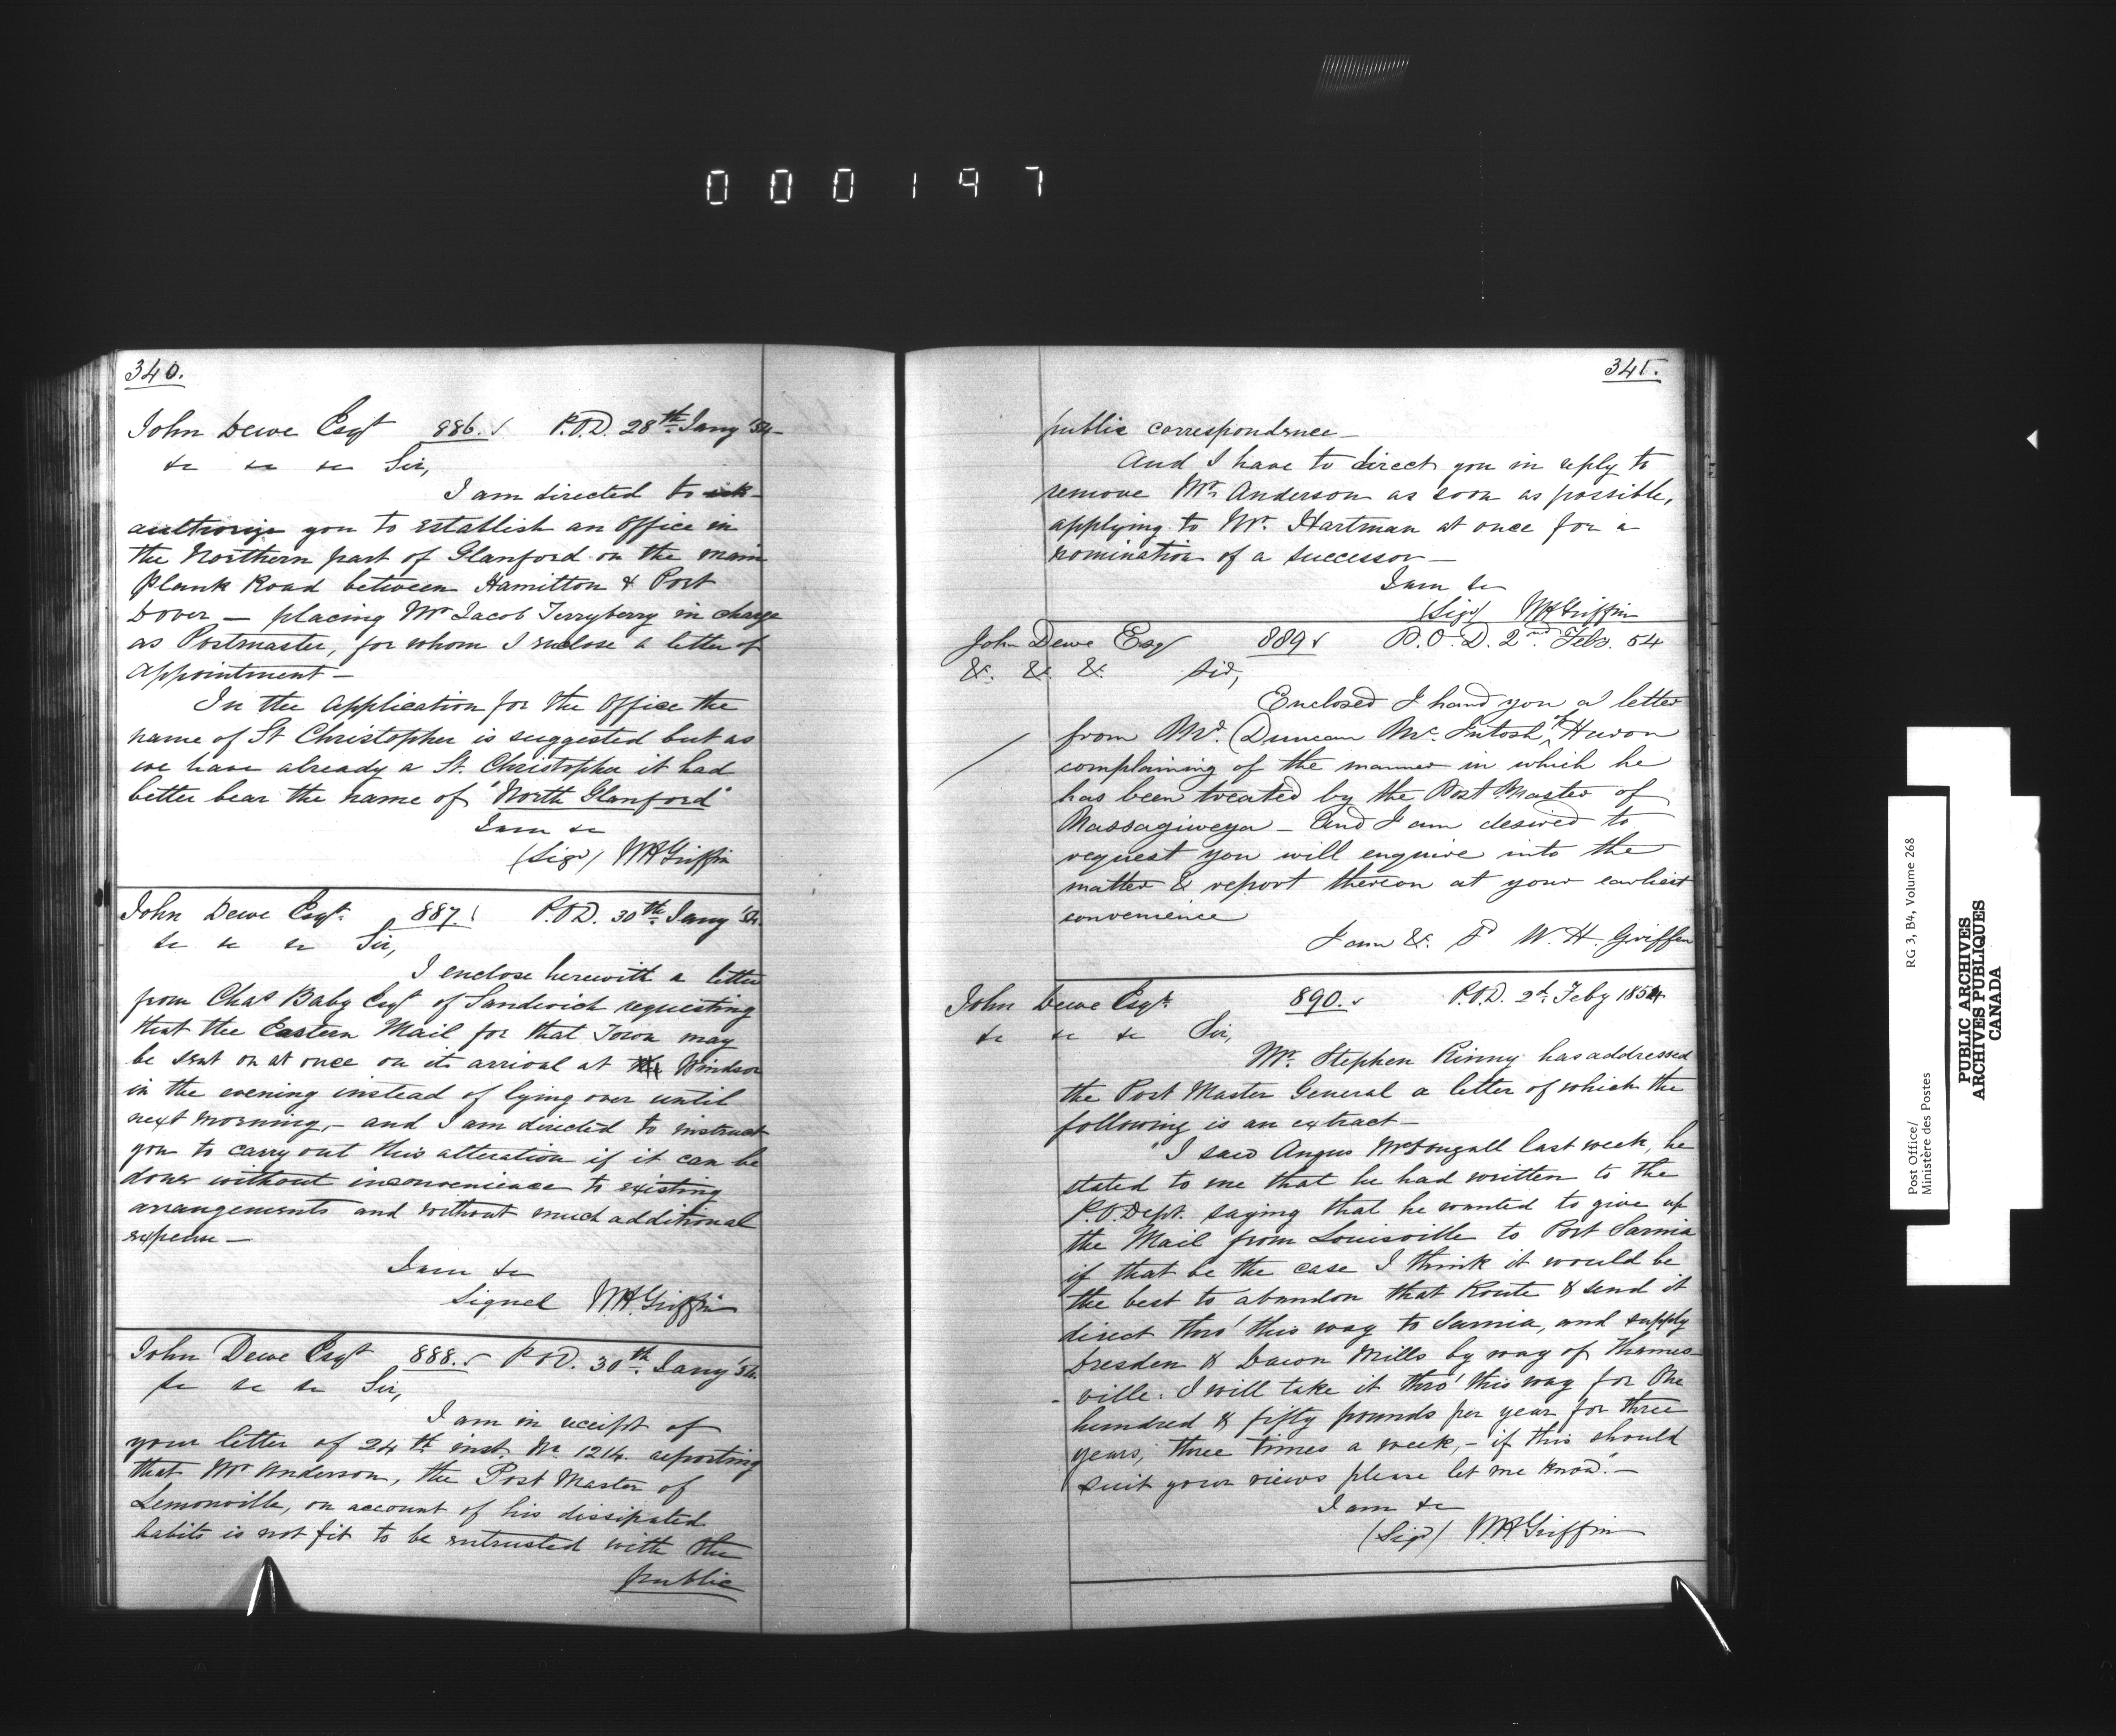 000197
340.
John Dewe Esqr 886. ✓ P.O.D. 28th Jany '54
&c &c &c Sir,
I am directed to
authorize you to establish an Office in
the Northern part of Glanford on the main
Plank Road between Hamilton & Port
Dover — placing Mr Jacob Terryberry in charge
as Postmaster, for whom I enclose a letter of
appointment —
In the Application for the Office the
name of St Christopher is suggested but as
we have already a St. Christopher it had
better bear the name of "North Glanford"
I am &c
(Sigd) W.H. Griffin
John Dewe Esqr. 887. P.O.D. 30th Jany '54.
&c &c &c Sir,
I enclose herewith a letter
from Chas Baby Esqr of Sandwich requesting
that the Eastern Mail for that Town may
be sent on at once on its arrival at Windsor
in the evening instead of lying over until
next morning, — and I am directed to instruct
you to carry out this alteration if it can be
done without inconvenience to existing
arrangements and without much additional
expense —
I am &c
Signed W.H. Griffin
John Dewe Esqr 888. ✓ P.O.D. 30th Jany '54.
&c &c &c Sir,
I am in receipt of
your letter of 24th inst. No. 1214. reporting
that Mr Anderson, the Post Master of
Lemonville, on account of his dissipated
habits is not fit to be entrusted with the
public
341.
public correspondence —
And I have to direct you in reply to
remove Mr. Anderson as soon as possible,
applying to Mr. Hartman at once for a
nomination of a successor —
I am &c
(Sigd) W.H. Griffin
John Dewe Esq 889 ✓ P.O.D. 2nd. Feb. 54
&. &. &. Sir,
Enclosed I hand you a letter
from Mr. Duncan McIntosh of Huron
complaining of the manner in which he
has been treated by the Post Master of
Nassagiweya — and I am desired to
request you will enquire into the
matter & report thereon at your earliest
convenience
I am &. W. H. Griffin
John Dewe Esqr. 890. ✓ P.O.D. 2d. Feby 1854
&c &c &c Sir,
Mr. Stephen Kinny has addressed
the Post Master General a letter of which the
following is an extract —
"I saw Angus McDougall last week, he
stated to me that he had written to the
P.O. Dept. saying that he wanted to give up
the Mail from Louisville to Port Sarnia
if that be the case I think it would be
the best to abandon that Route & send it
direct thro' this way to Sarnia, and supply
Dresden & Dawn Mills by way of Thames-
-ville. I will take it thro' this way for One
hundred & fifty pounds per year for three
years, three times a week, — if this should
suit your views please let me know." —
I am &c
(Sigd) W.H. Griffin
Post Office/
Ministère des Postes
RG 3, B4, Volume 268
PUBLIC ARCHIVES
ARCHIVES PUBLIQUES
CANADA